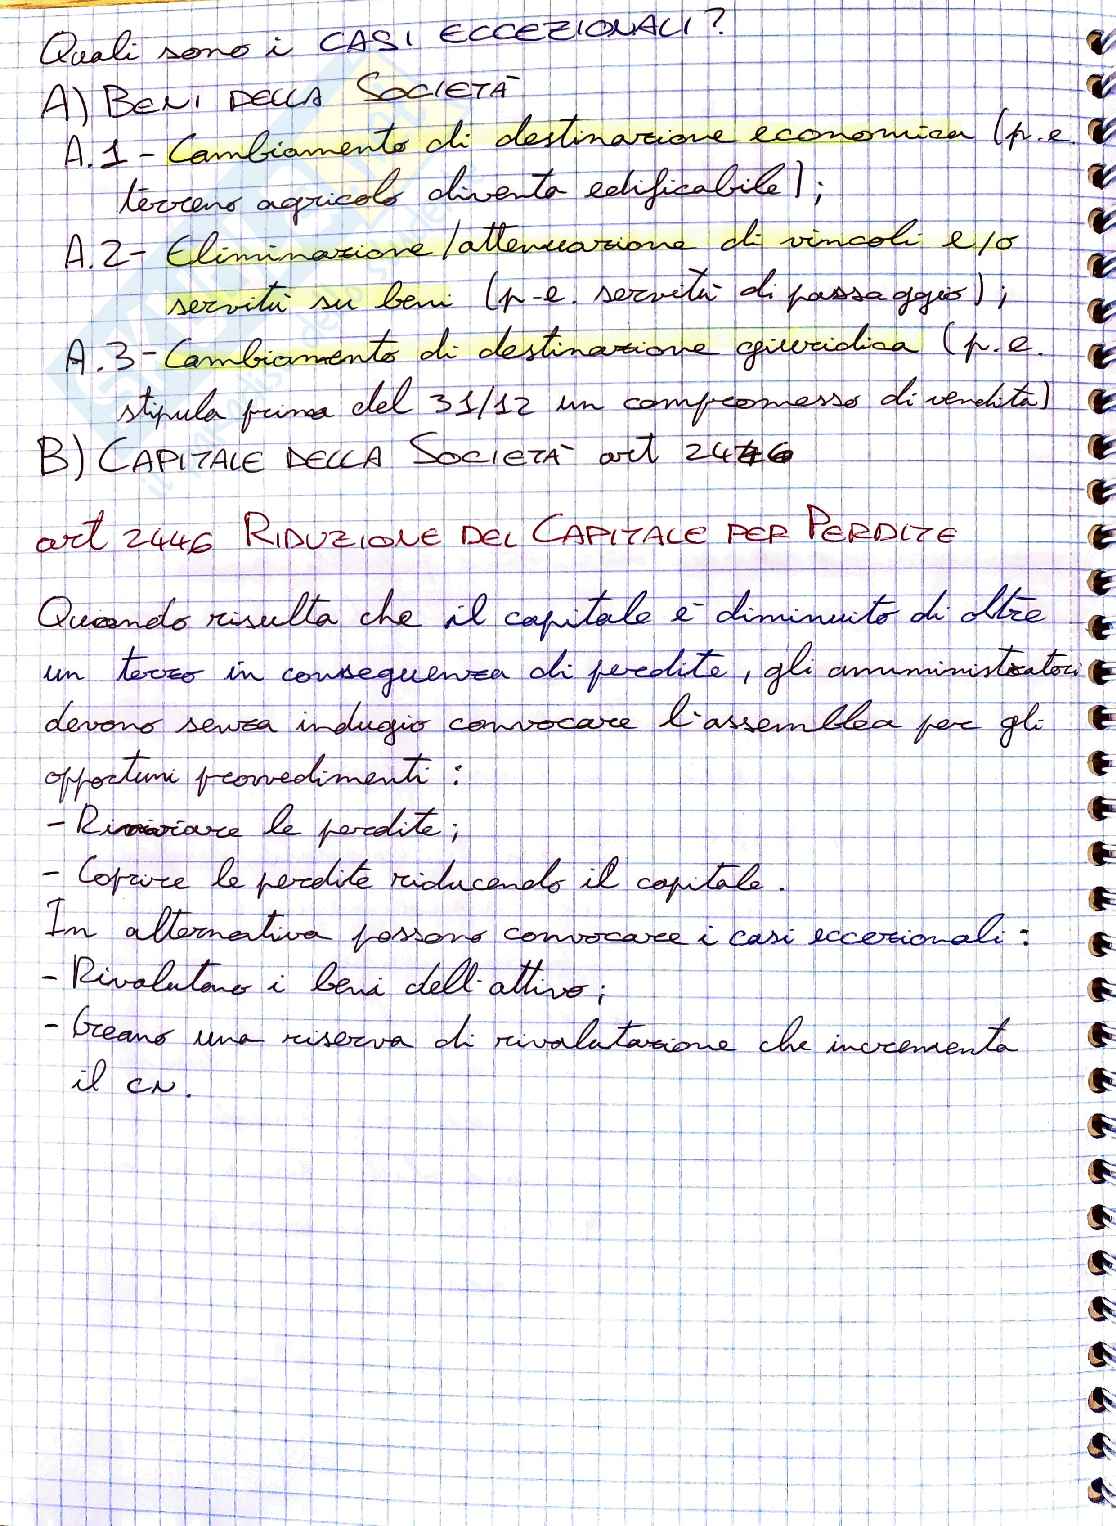 Quali sono i CASI ECCEZIONALI?
A) BENI DELLA SOCIETÀ
A.1 - Cambiamento di destinazione economica (p.e.
terreno agricolo diventa edificabile);
A.2 - Eliminazione/attenuazione di vincoli e/o
servitù su beni (p.e. servitù di passaggio);
A.3 - Cambiamento di destinazione giuridica (p.e.
stipula prima del 31/12 un compromesso di vendita)
B) CAPITALE DELLA SOCIETÀ art 2446
art 2446 RIDUZIONE DEL CAPITALE PER PERDITE
Quando risulta che il capitale è diminuito di oltre
un terzo in conseguenza di perdite, gli amministratori
devono senza indugio convocare l'assemblea per gli
opportuni provvedimenti:
- Rinviare le perdite;
- Coprire le perdite riducendo il capitale.
In alternativa possono convocare i casi eccezionali:
- Rivalutano i beni dell'attivo;
- Creano una riserva di rivalutazione che incrementa
il CN.